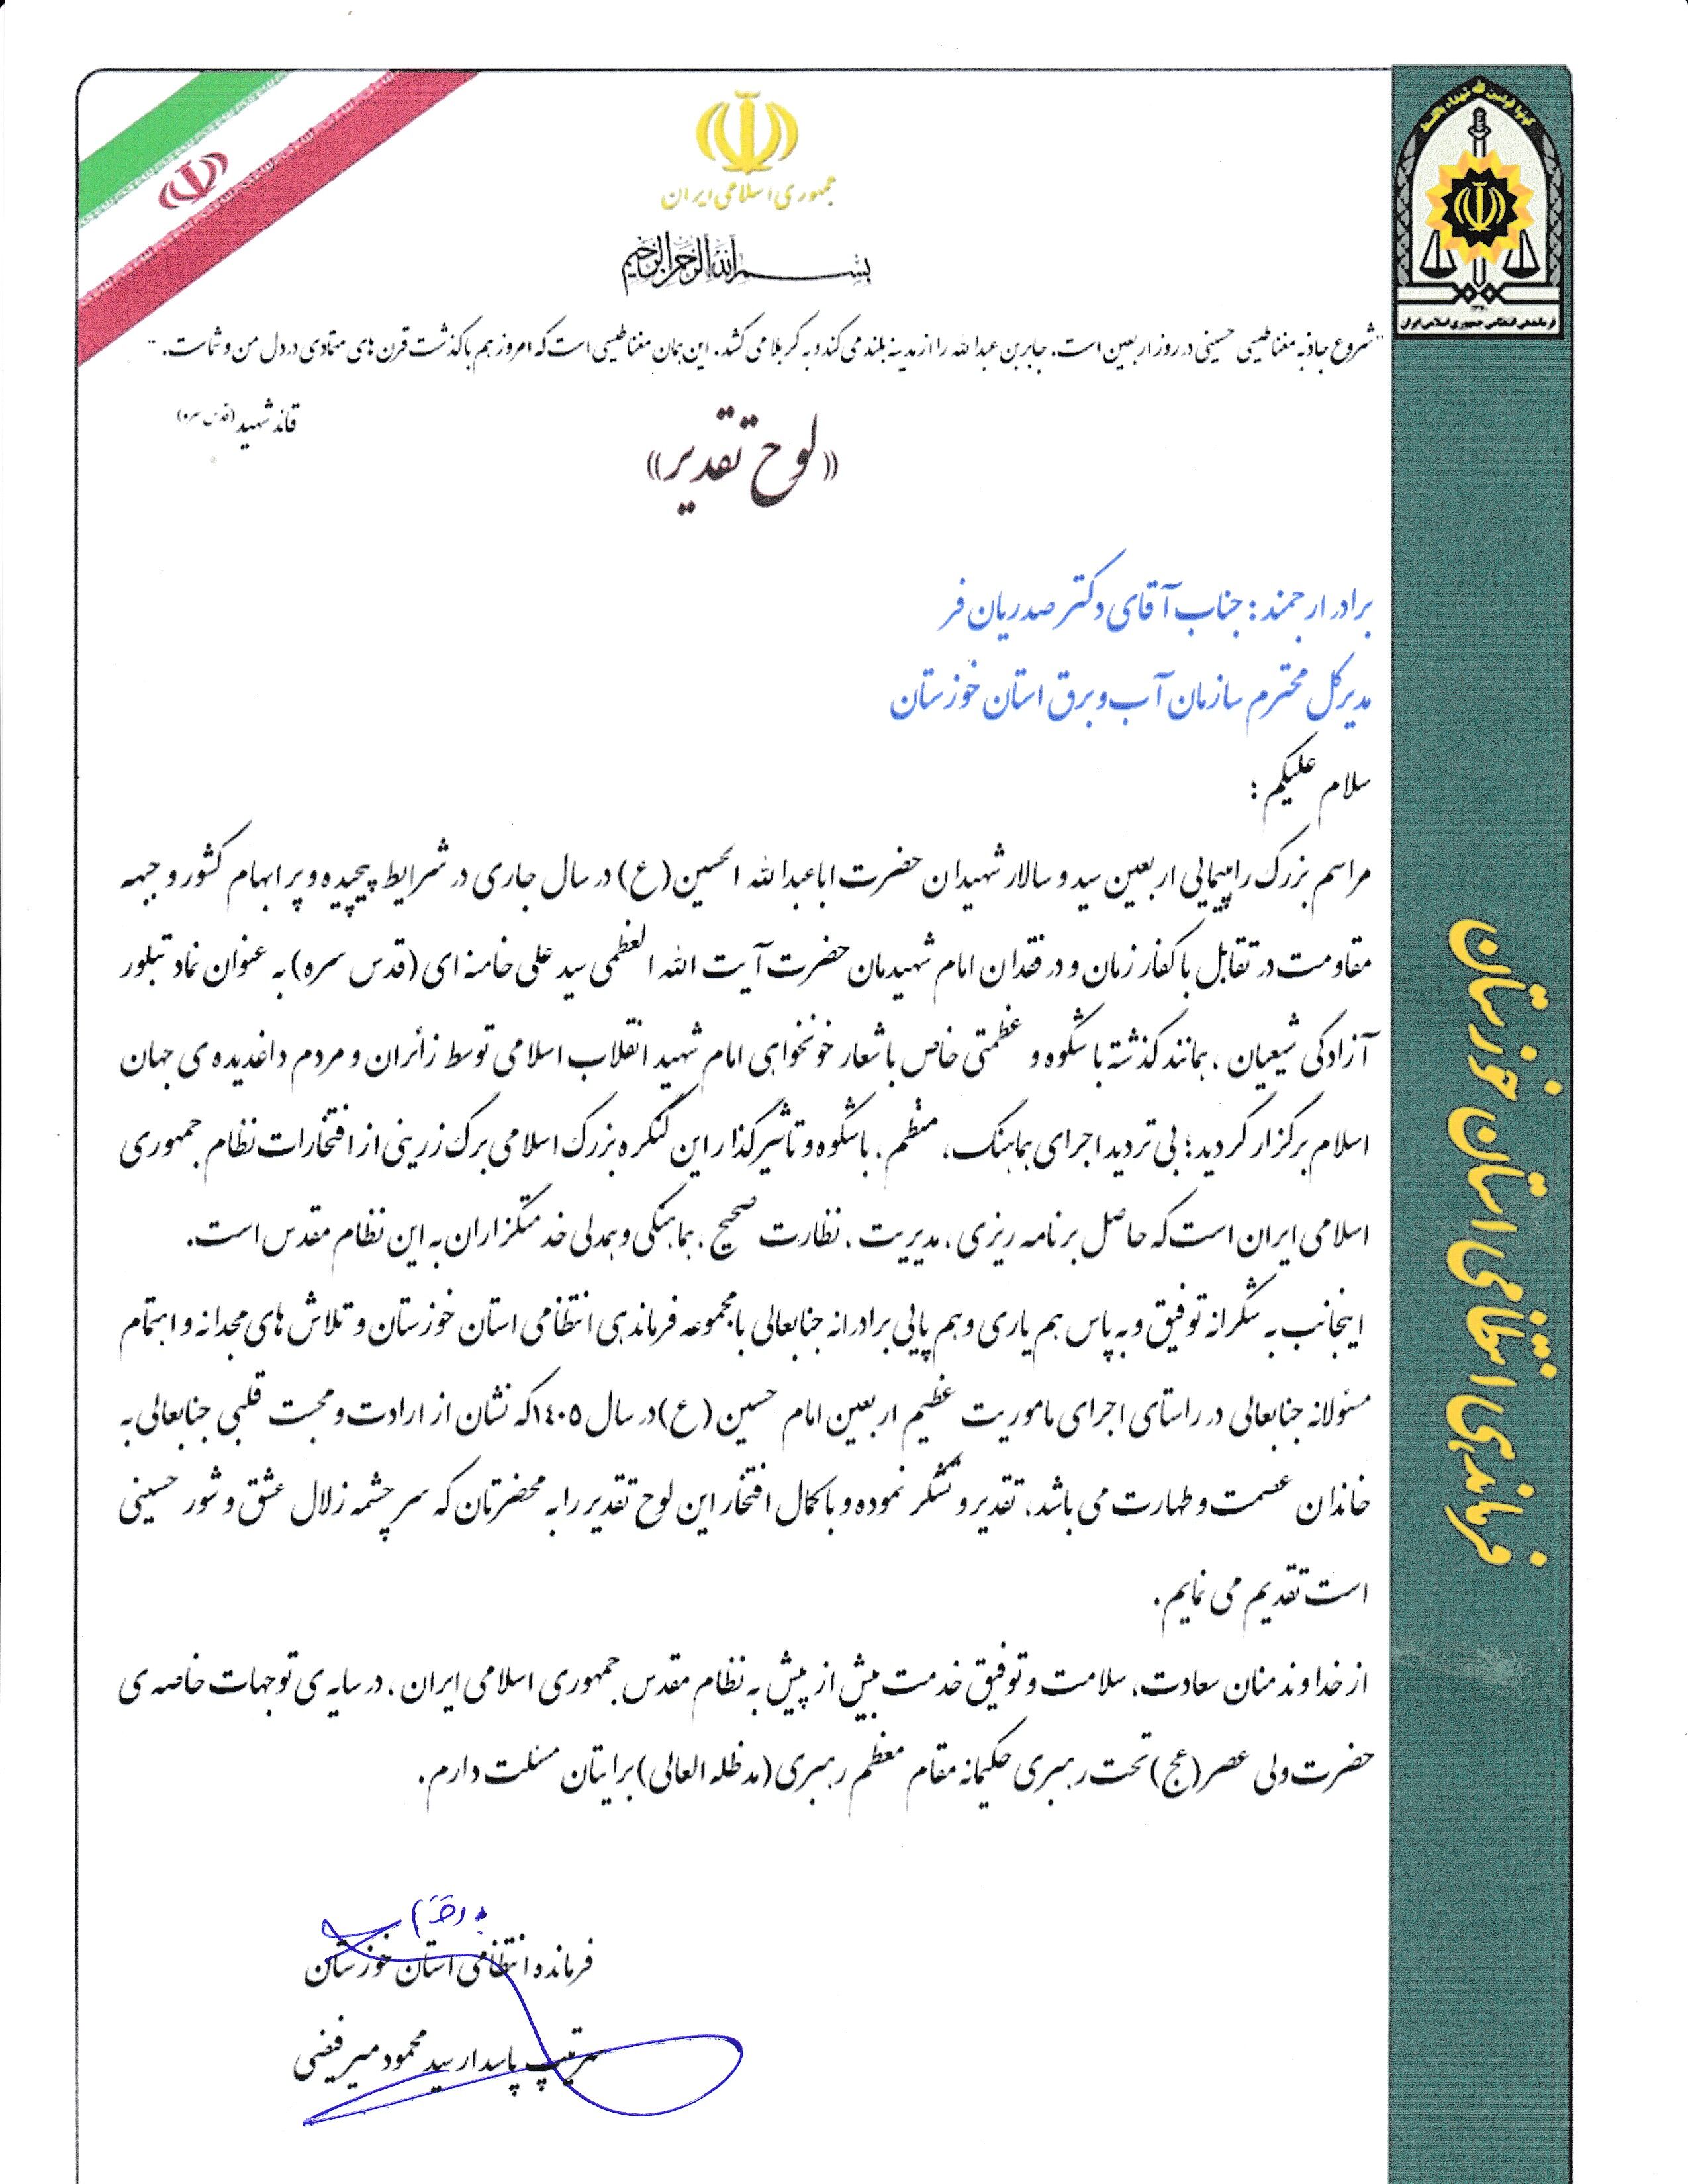 جمهوری اسلامی ایران
بسم الله الرحمن الرحیم
کونوا قوامین لله شهداء بالقسط
فرماندهی انتظامی جمهوری اسلامی ایران
"شروع جاذبه مغناطیسی حسینی در روز اربعین است. جابربن عبدالله را از مدینه بلند می کند و به کربلا می کشد. این همان مغناطیسی است که امروز هم با گذشت قرن های متمادی در دل من و شماست."
قائد شهید (قدس سره)
«لوح تقدیر»
برادر ارجمند: جناب آقای دکتر صدریان فر
مدیرکل محترم سازمان آب و برق استان خوزستان
سلام علیکم:
مراسم بزرگ راهپیمایی اربعین سید و سالار شهیدان حضرت اباعبدالله الحسین(ع) در سال جاری در شرایط پیچیده و پر ابهام کشور و جبهه
مقاومت در تقابل با کفار زمان و در فقدان امام شهیدمان حضرت آیت الله العظمی سید علی خامنه ای (قدس سره) به عنوان نماد تبلور
آزادگی شیعیان، همانند گذشته با شکوه و عظمتی خاص با شعار خونخواهی امام شهید انقلاب اسلامی توسط زائران و مردم داغدیده ی جهان
اسلام برگزار گردید؛ بی تردید اجرای هماهنگ، منظم، باشکوه و تاثیرگذار این کنگره بزرگ اسلامی برگ زرینی از افتخارات نظام جمهوری
اسلامی ایران است که حاصل برنامه ریزی، مدیریت، نظارت صحیح، هماهنگی و همدلی خدمتگزاران به این نظام مقدس است.
اینجانب به شکرانه توفیق و به پاس هم یاری و هم پایی برادرانه جنابعالی با مجموعه فرماندهی انتظامی استان خوزستان و تلاش های مجدانه و اهتمام
مسئولانه جنابعالی در راستای اجرای ماموریت عظیم اربعین امام حسین (ع) در سال ۱۴۰۵ که نشان از ارادت و محبت قلبی جنابعالی به
خاندان عصمت و طهارت می باشد، تقدیر و تشکر نموده و با کمال افتخار این لوح تقدیر را به محضرتان که سرچشمه زلال عشق و شور حسینی
است تقدیم می نمایم.
از خداوند منان سعادت، سلامت و توفیق خدمت بیش از پیش به نظام مقدس جمهوری اسلامی ایران، در سایه ی توجهات خاصه ی
حضرت ولی عصر (عج) تحت رهبری حکیمانه مقام معظم رهبری (مدظله العالی) برایتان مسئلت دارم.
فرمانده انتظامی استان خوزستان
سرتیپ پاسدار سید محمود میرفیضی
فرماندهی انتظامی استان خوزستان